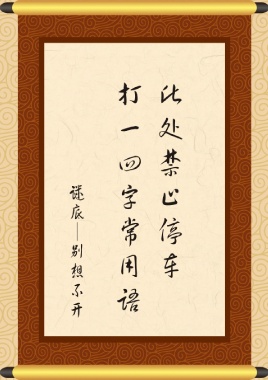 此处禁止停车
打一四字常用语
谜底——别想不开